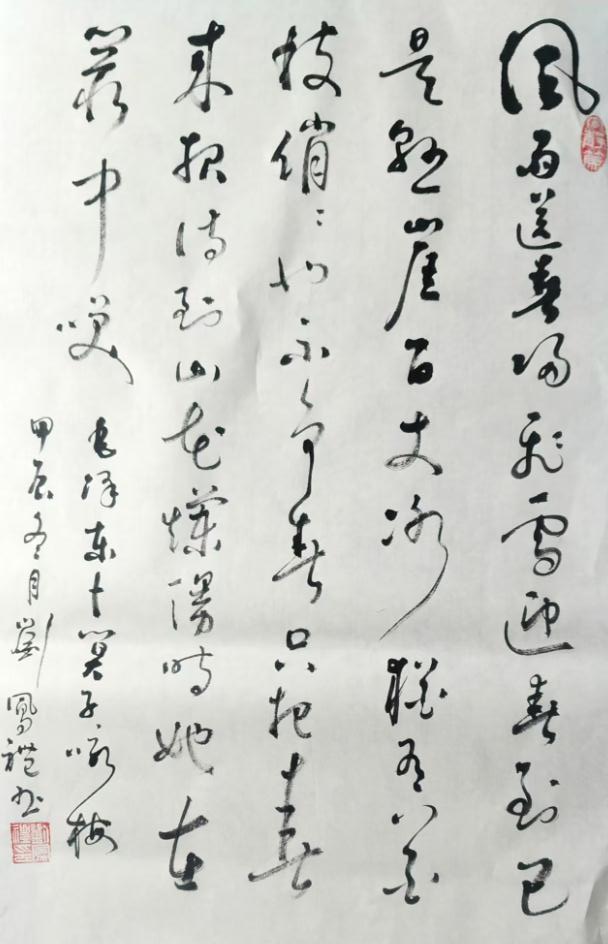 風雨送春歸飛雪迎春到已
是懸崖百丈冰猶有花
枝俏〻也不爭春只把春
來報待到山花爛漫時她在
叢中咲
毛澤東卜算子咏梅
甲辰冬月劉鳳禮书